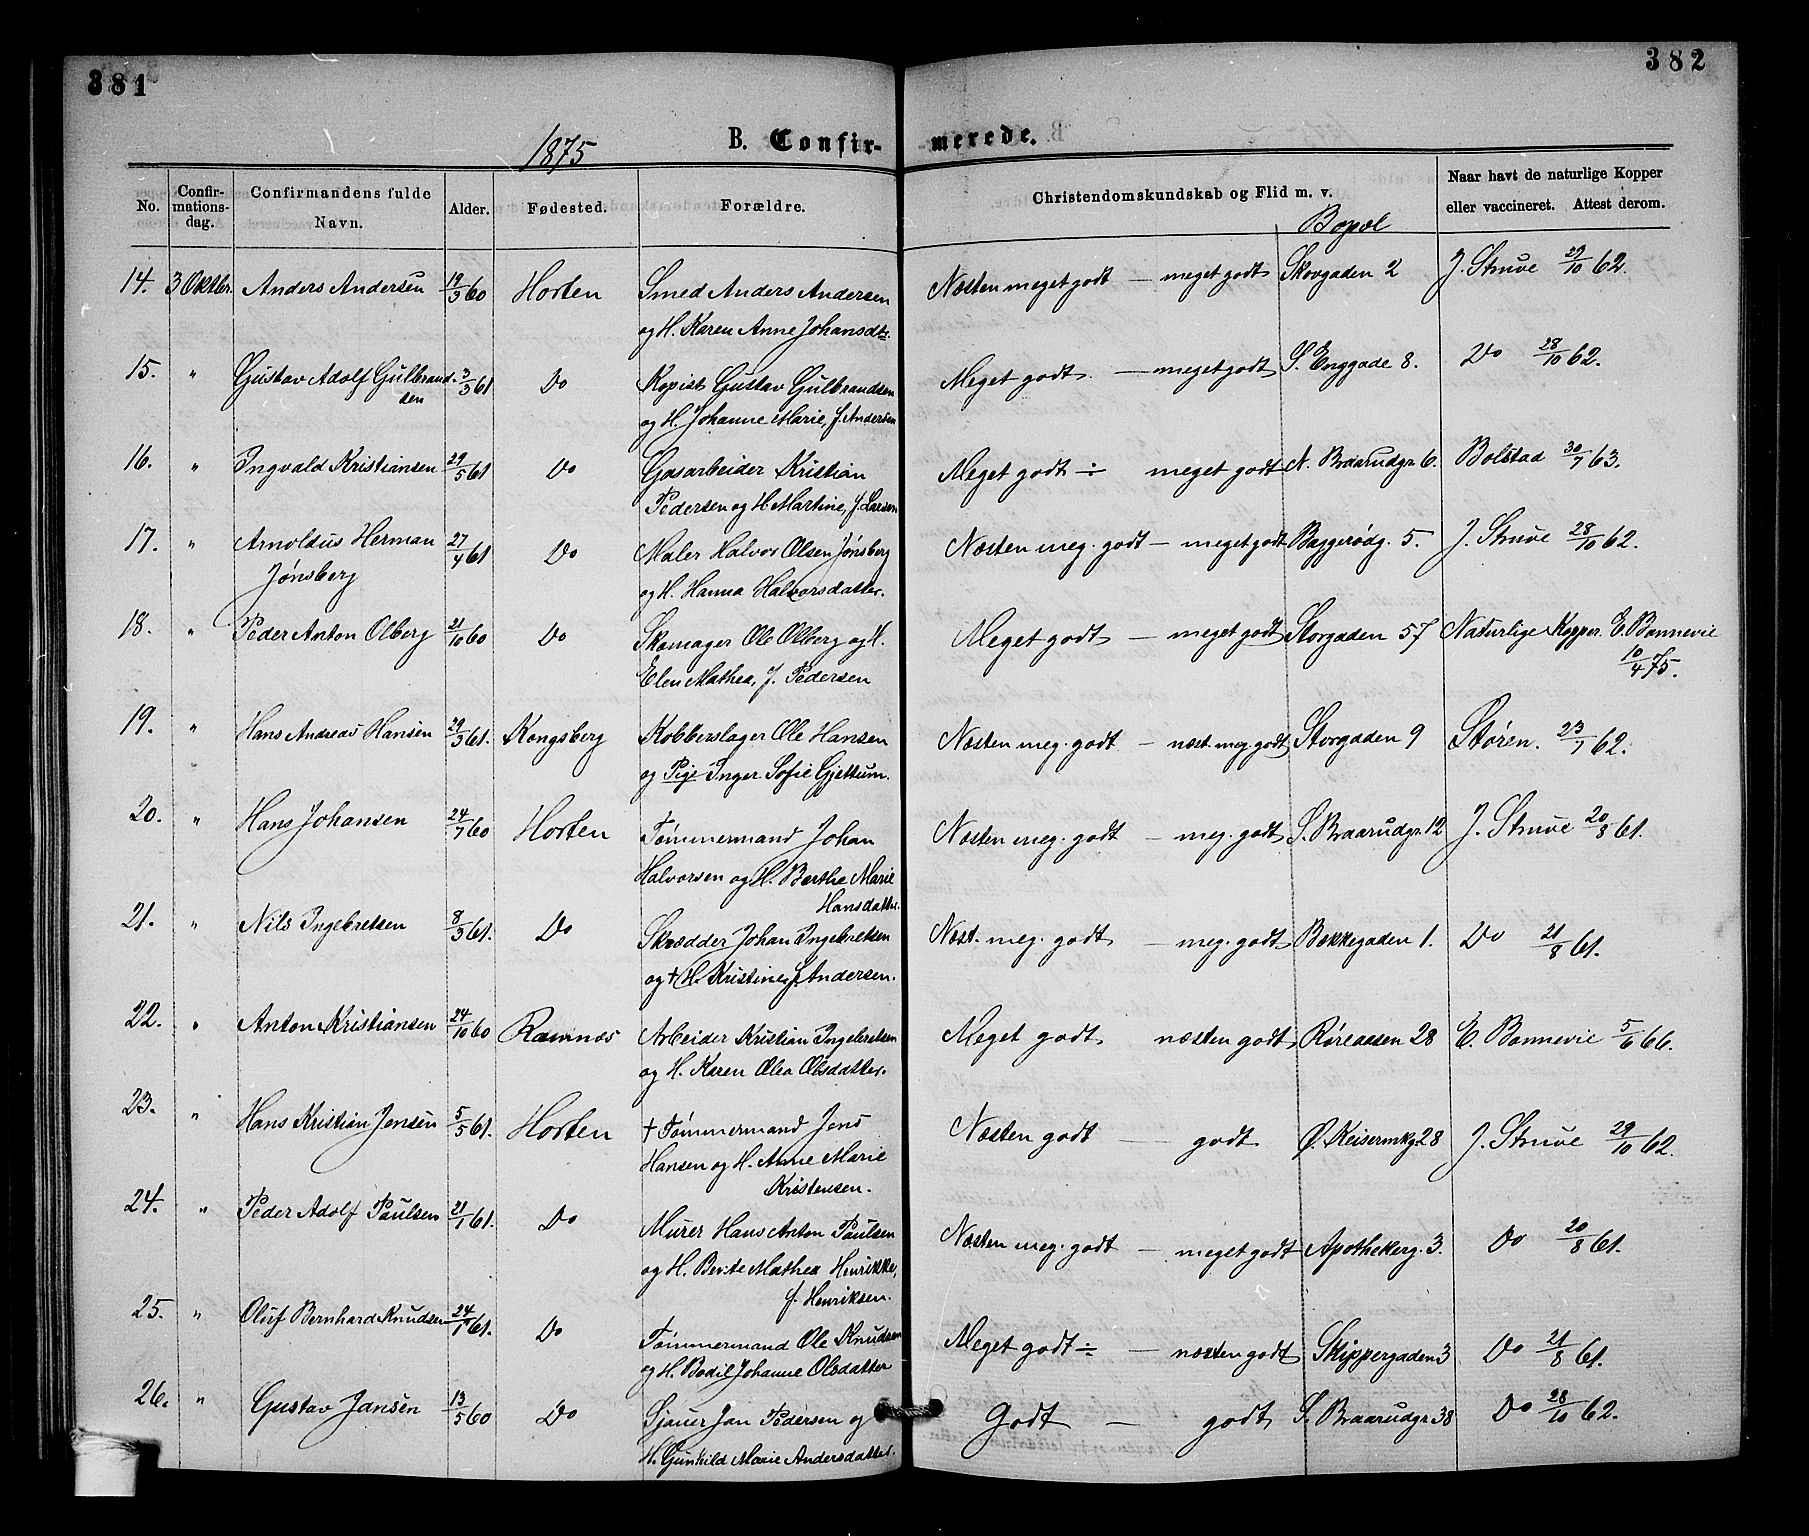 381
382
1875
B. Confirmerede.
No. Confirmationsdag. Confirmandens fulde Navn. Alder. Fødested. Forældre. Christendomskundskab og Flid m. v. Bopæl Naar havt de naturlige Kopper eller vaccineret. Attest derom.
14. 3 Oktbr. Anders Andersen 19/3 60 Horten Smed Anders Andersen Næsten meget godt — meget godt Skovgaden 2 J. Struve 29/10 62.
og H. Karen Anne Johansdtr.
15. " Gustav Adolf Gulbrand- 3/3 61 Do Kopist Gustav Gulbrandsen Meget godt. — meget godt S. Enggade 8. Do 28/10 62.
sen og H. Johanne Marie, f. Andersen
16. " Ingvald Kristiansen 29/5 61 Do Gasarbeider Kristian Meget godt ÷ meget godt N. Braarudgr. 6. Bolstad 30/7 63.
Pedersen og H. Martine, f. Larsen
17. " Arnoldus Herman 27/4 61 Do Maler Halvor Olsen Jønsberg Næsten meg. godt — meget godt Baggerødg. 5. J. Struve 28/10 62.
Jønsberg og H. Hanna Halvorsdatter.
18. " Peder Anton Olberg 21/10 60 Do Skomager Ole Olberg og H. Meget godt — meget godt Storgaden 57 Naturlige Kopper. E. Bonnevie
Elen Mathea, f. Pedersen 10/4 75.
19. " Hans Andreas Hansen 29/3 61. Kongsberg Kobberslager Ole Hansen Næsten meg. godt — næst. meg. godt Storgaden 9 Støren. 23/7 62.
og Pige Inger Sofie Gjettum.
20. " Hans Johansen 24/7 60 Horten Tømmermand Johan Næsten meg. godt — meg. godt S. Braarudgr. 12 J. Struve 20/8 61.
Halvorsen og H. Berthe Marie
Hansdatter.
21. " Nils Ingebretsen 8/3 61. Do Skrædder Johan Ingebretsen Næst. meg. godt — meg. godt Bækkegaden 1. Do 21/8 61.
og † H. Kristine, f. Andersen.
22. " Anton Kristiansen 24/10 60 Ramnæs Arbeider Kristian Ingebretsen Meget godt næsten godt Røreaasen 28 E. Bonnevie 5/6 66.
og H. Karen Olea Olsdatter.
23. " Hans Kristian Jensen 5/5 61. Horten † Tømmermand Jens Næsten godt — godt Ø. Keisermkg. 28 J. Struve 29/10 62.
Hansen og H. Anne Marie
Kristensen.
24. " Peder Adolf Paulsen 21/1 61. Do Murer Hans Anton Paulsen Næsten meg. godt — meget godt Apothekerg. 3. Do 20/8 61.
og H. Berte Mathea Henrikke,
f. Henriksen.
25. " Oluf Bernhard Knudsen 24/1 61. Do Tømmermand Ole Knudsen Meget godt ÷ — næsten godt Skippergaden 3 Do 21/8 61.
og H. Bodil Johanne Olsdatter
26. " Gustav Jansen 13/5 60 Do Sjauer Jan Pedersen og Godt — godt S. Braarudgr. 38 Do 28/10 62.
H. Gunhild Marie Andersdatter.